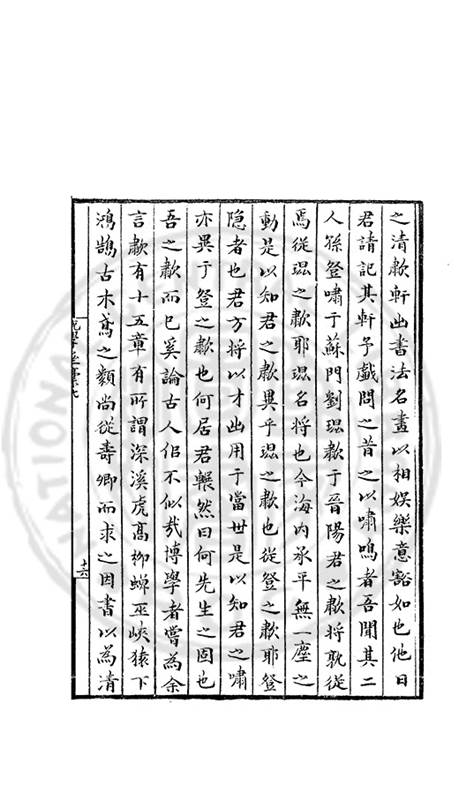 之清歗軒出書法名畫以相娱樂意豁如也他日
君請記其軒予戯問之昔之以嘯鳴者吾聞其二
人孫登嘯于蘇門劉琨歗于晉陽君之歗將孰從
焉從琨之歗耶琨名將也今海内承平無一塵之
動是以知君之歗異乎琨之歗也從登之歗耶登
隐者也君方將以才出用于當世是以知君之嘯
亦異于登之歗也何居君冁然曰何先生之固也
吾之歗而已奚論古人佀不似哉博學者嘗為余
言歗有十五章有所謂深溪虎髙柳蟬巫峽猿下
鴻鵠古木鳶之類尚從壽卿而求之因書以為清
十六
NATIONAL